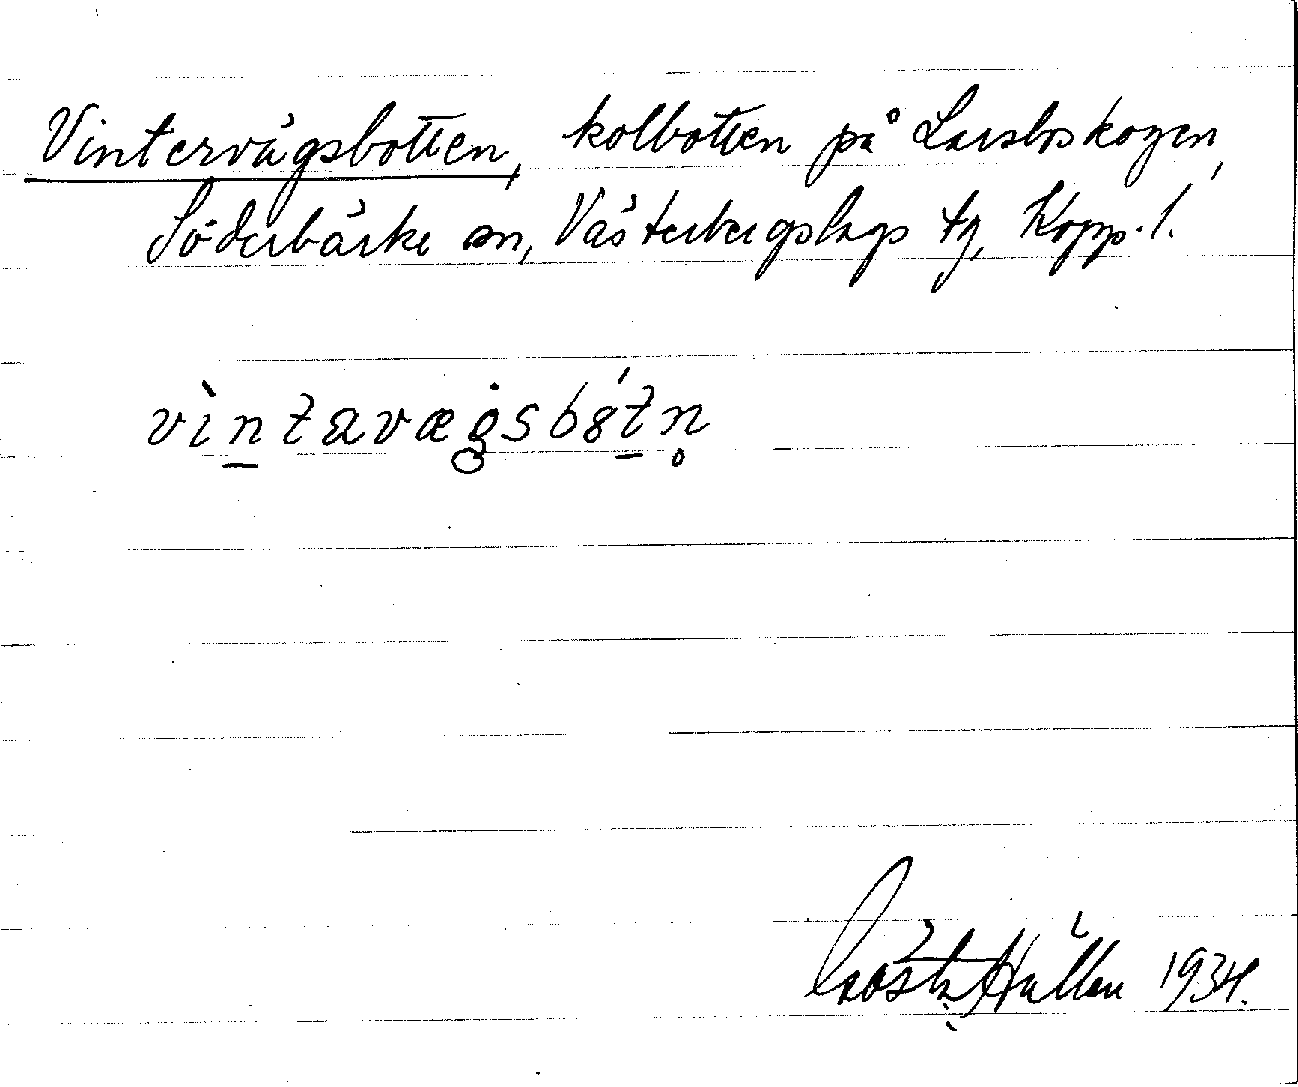 Vintervägsbotten, kolbotten på Larsboskogen,
Söderbärke sn, Västerbergslags tg, Kopp. l.
vìntavægsbótn̥
Gösta Hällen 1934.